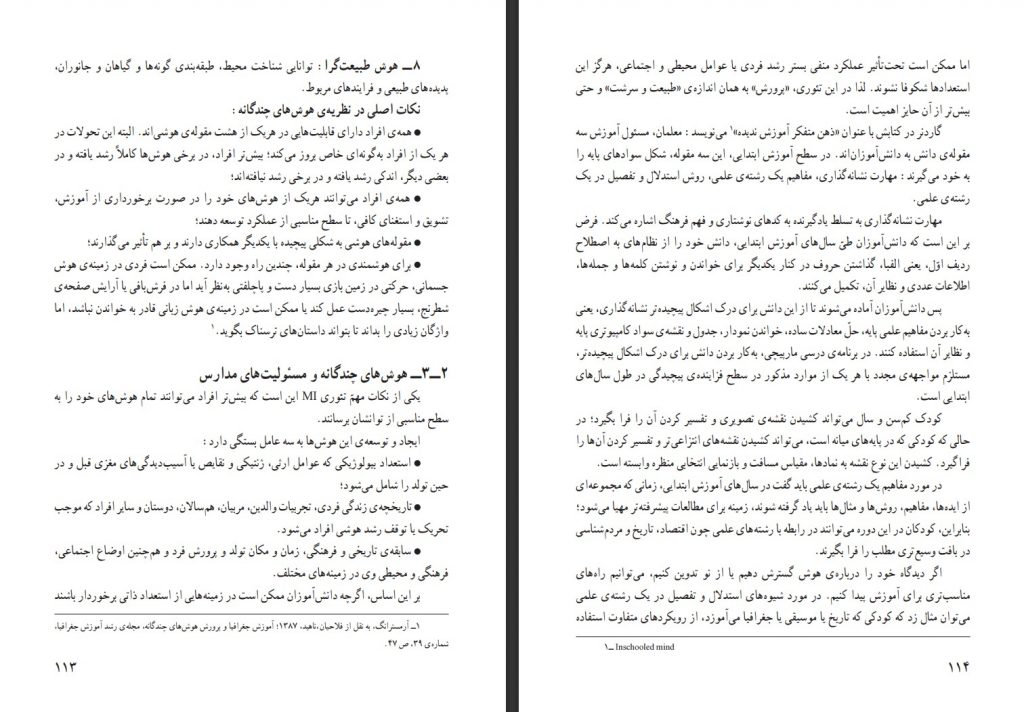 ۸ــ هوش طبیعت‌گرا : توانایی شناخت محیط، طبقه‌بندی گونه‌ها و گیاهان و جانوران،
پدیده‌های طبیعی و فرایندهای مربوط.
نکات اصلی در نظریه‌ی هوش‌های چندگانه :
● همه‌ی افراد دارای قابلیت‌هایی در هریک از هشت مقوله‌ی هوشی‌اند. البته این تحولات در
هر یک از افراد به‌گونه‌ای خاص بروز می‌کند؛ بیش‌تر افراد، در برخی هوش‌ها کاملاً رشد یافته و در
بعضی دیگر، اندکی رشد یافته و در برخی رشد نیافته‌اند؛
● همه‌ی افراد می‌توانند هریک از هوش‌های خود را در صورت برخورداری از آموزش،
تشویق و استغنای کافی، تا سطح مناسبی از عملکرد توسعه دهند؛
● مقوله‌های هوشی به شکلی پیچیده با یکدیگر همکاری دارند و بر هم تأثیر می‌گذارند؛
● برای هوشمندی در هر مقوله، چندین راه وجود دارد. ممکن است فردی در زمینه‌ی هوش
جسمانی، حرکتی در زمین بازی بسیار دست و پاچلفتی به‌نظر آید اما در فرش‌بافی یا آرایش صفحه‌ی
شطرنج، بسیار چیره‌دست عمل کند یا ممکن است در زمینه‌ی هوش زبانی قادر به خواندن نباشد، اما
واژگان زیادی را بداند تا بتواند داستان‌های ترسناک بگوید.۱
۲ــ۳ــ هوش‌های چندگانه و مسئولیت‌های مدارس
یکی از نکات مهمّ تئوری MI این است که بیش‌تر افراد می‌توانند تمام هوش‌های خود را به
سطح مناسبی از توانشان برسانند.
ایجاد و توسعه‌ی این هوش‌ها به سه عامل بستگی دارد :
● استعداد بیولوژیکی که عوامل ارثی، ژنتیکی و نقایص یا آسیب‌دیدگی‌های مغزی قبل و در
حین تولد را شامل می‌شود؛
● تاریخچه‌ی زندگی فردی، تجربیات والدین، مربیان، هم‌سالان، دوستان و سایر افراد که موجب
تحریک یا توقف رشد هوشی افراد می‌شود.
● سابقه‌ی تاریخی و فرهنگی، زمان و مکان تولد و پرورش فرد و هم‌چنین اوضاع اجتماعی،
فرهنگی و محیطی وی در زمینه‌های مختلف.
بر این اساس، اگرچه دانش‌آموزان ممکن است در زمینه‌هایی از استعداد ذاتی برخوردار باشند
۱ــ آرمسترانگ، به نقل از فلاحیان،ناهید، ۱۳۸۷؛ آموزش جغرافیا و پرورش هوش‌های چندگانه، مجله‌ی رشد آموزش جغرافیا،
شماره‌ی ۳۹، ص ۴۷.
۱۱۳
اما ممکن است تحت‌تأثیر عملکرد منفی بستر رشد فردی یا عوامل محیطی و اجتماعی، هرگز این
استعدادها شکوفا نشوند. لذا در این تئوری، «پرورش» به همان اندازه‌ی «طبیعت و سرشت» و حتی
بیش‌تر از آن حایز اهمیت است.
گاردنر در کتابش با عنوان «ذهن متفکر آموزش ندیده»۱ می‌نویسد : معلمان، مسئول آموزش سه
مقوله‌ی دانش به دانش‌آموزان‌اند. در سطح آموزش ابتدایی، این سه مقوله، شکل سوادهای پایه را
به خود می‌گیرند : مهارت نشانه‌گذاری، مفاهیم یک رشته‌ی علمی، روش استدلال و تفصیل در یک
رشته‌ی علمی.
مهارت نشانه‌گذاری به تسلط یادگیرنده به کدهای نوشتاری و فهم فرهنگ اشاره می‌کند. فرض
بر این است که دانش‌آموزان طیّ سال‌های آموزش ابتدایی، دانش خود را از نظام‌های به اصطلاح
ردیف اوّل، یعنی الفبا، گذاشتن حروف در کنار یکدیگر برای خواندن و نوشتن کلمه‌ها و جمله‌ها،
اطلاعات عددی و نظایر آن، تکمیل می‌کنند.
پس دانش‌آموزان آماده می‌شوند تا از این دانش برای درک اشکال پیچیده‌تر نشانه‌گذاری، یعنی
به‌کار بردن مفاهیم علمی پایه، حلّ معادلات ساده، خواندن نمودار، جدول و نقشه‌ی سواد کامپیوتری پایه
و نظایر آن استفاده کنند. در برنامه‌ی درسی مارپیچی، به‌کار بردن دانش برای درک اشکال پیچیده‌تر،
مستلزم مواجهه‌ی مجدد با هر یک از موارد مذکور در سطح فزاینده‌ی پیچیدگی در طول سال‌های
ابتدایی است.
کودک کم‌سن و سال می‌تواند کشیدن نقشه‌ی تصویری و تفسیر کردن آن را فرا بگیرد؛ در
حالی که کودکی که در پایه‌های میانه است، می‌تواند کشیدن نقشه‌های انتزاعی‌تر و تفسیر کردن آن‌ها را
فراگیرد. کشیدن این نوع نقشه به نمادها، مقیاس مسافت و بازنمایی انتخابی منظره وابسته است.
در مورد مفاهیم یک رشته‌ی علمی باید گفت در سال‌های آموزش ابتدایی، زمانی که مجموعه‌ای
از ایده‌ها، مفاهیم، روش‌ها و مثال‌ها باید یاد گرفته شوند، زمینه برای مطالعات پیشرفته‌تر مهیا می‌شود؛
بنابراین، کودکان در این دوره می‌توانند در رابطه با رشته‌های علمی چون اقتصاد، تاریخ و مردم‌شناسی
در بافت وسیع‌تری مطلب را فرا بگیرند.
اگر دیدگاه خود را درباره‌ی هوش گسترش دهیم یا از نو تدوین کنیم، می‌توانیم راه‌های
مناسب‌تری برای آموزش پیدا کنیم. در مورد شیوه‌های استدلال و تفصیل در یک رشته‌ی علمی
می‌توان مثال زد که کودکی که تاریخ یا موسیقی یا جغرافیا می‌آموزد، از رویکردهای متفاوت استفاده
۱ــ Inschooled mind
۱۱۴